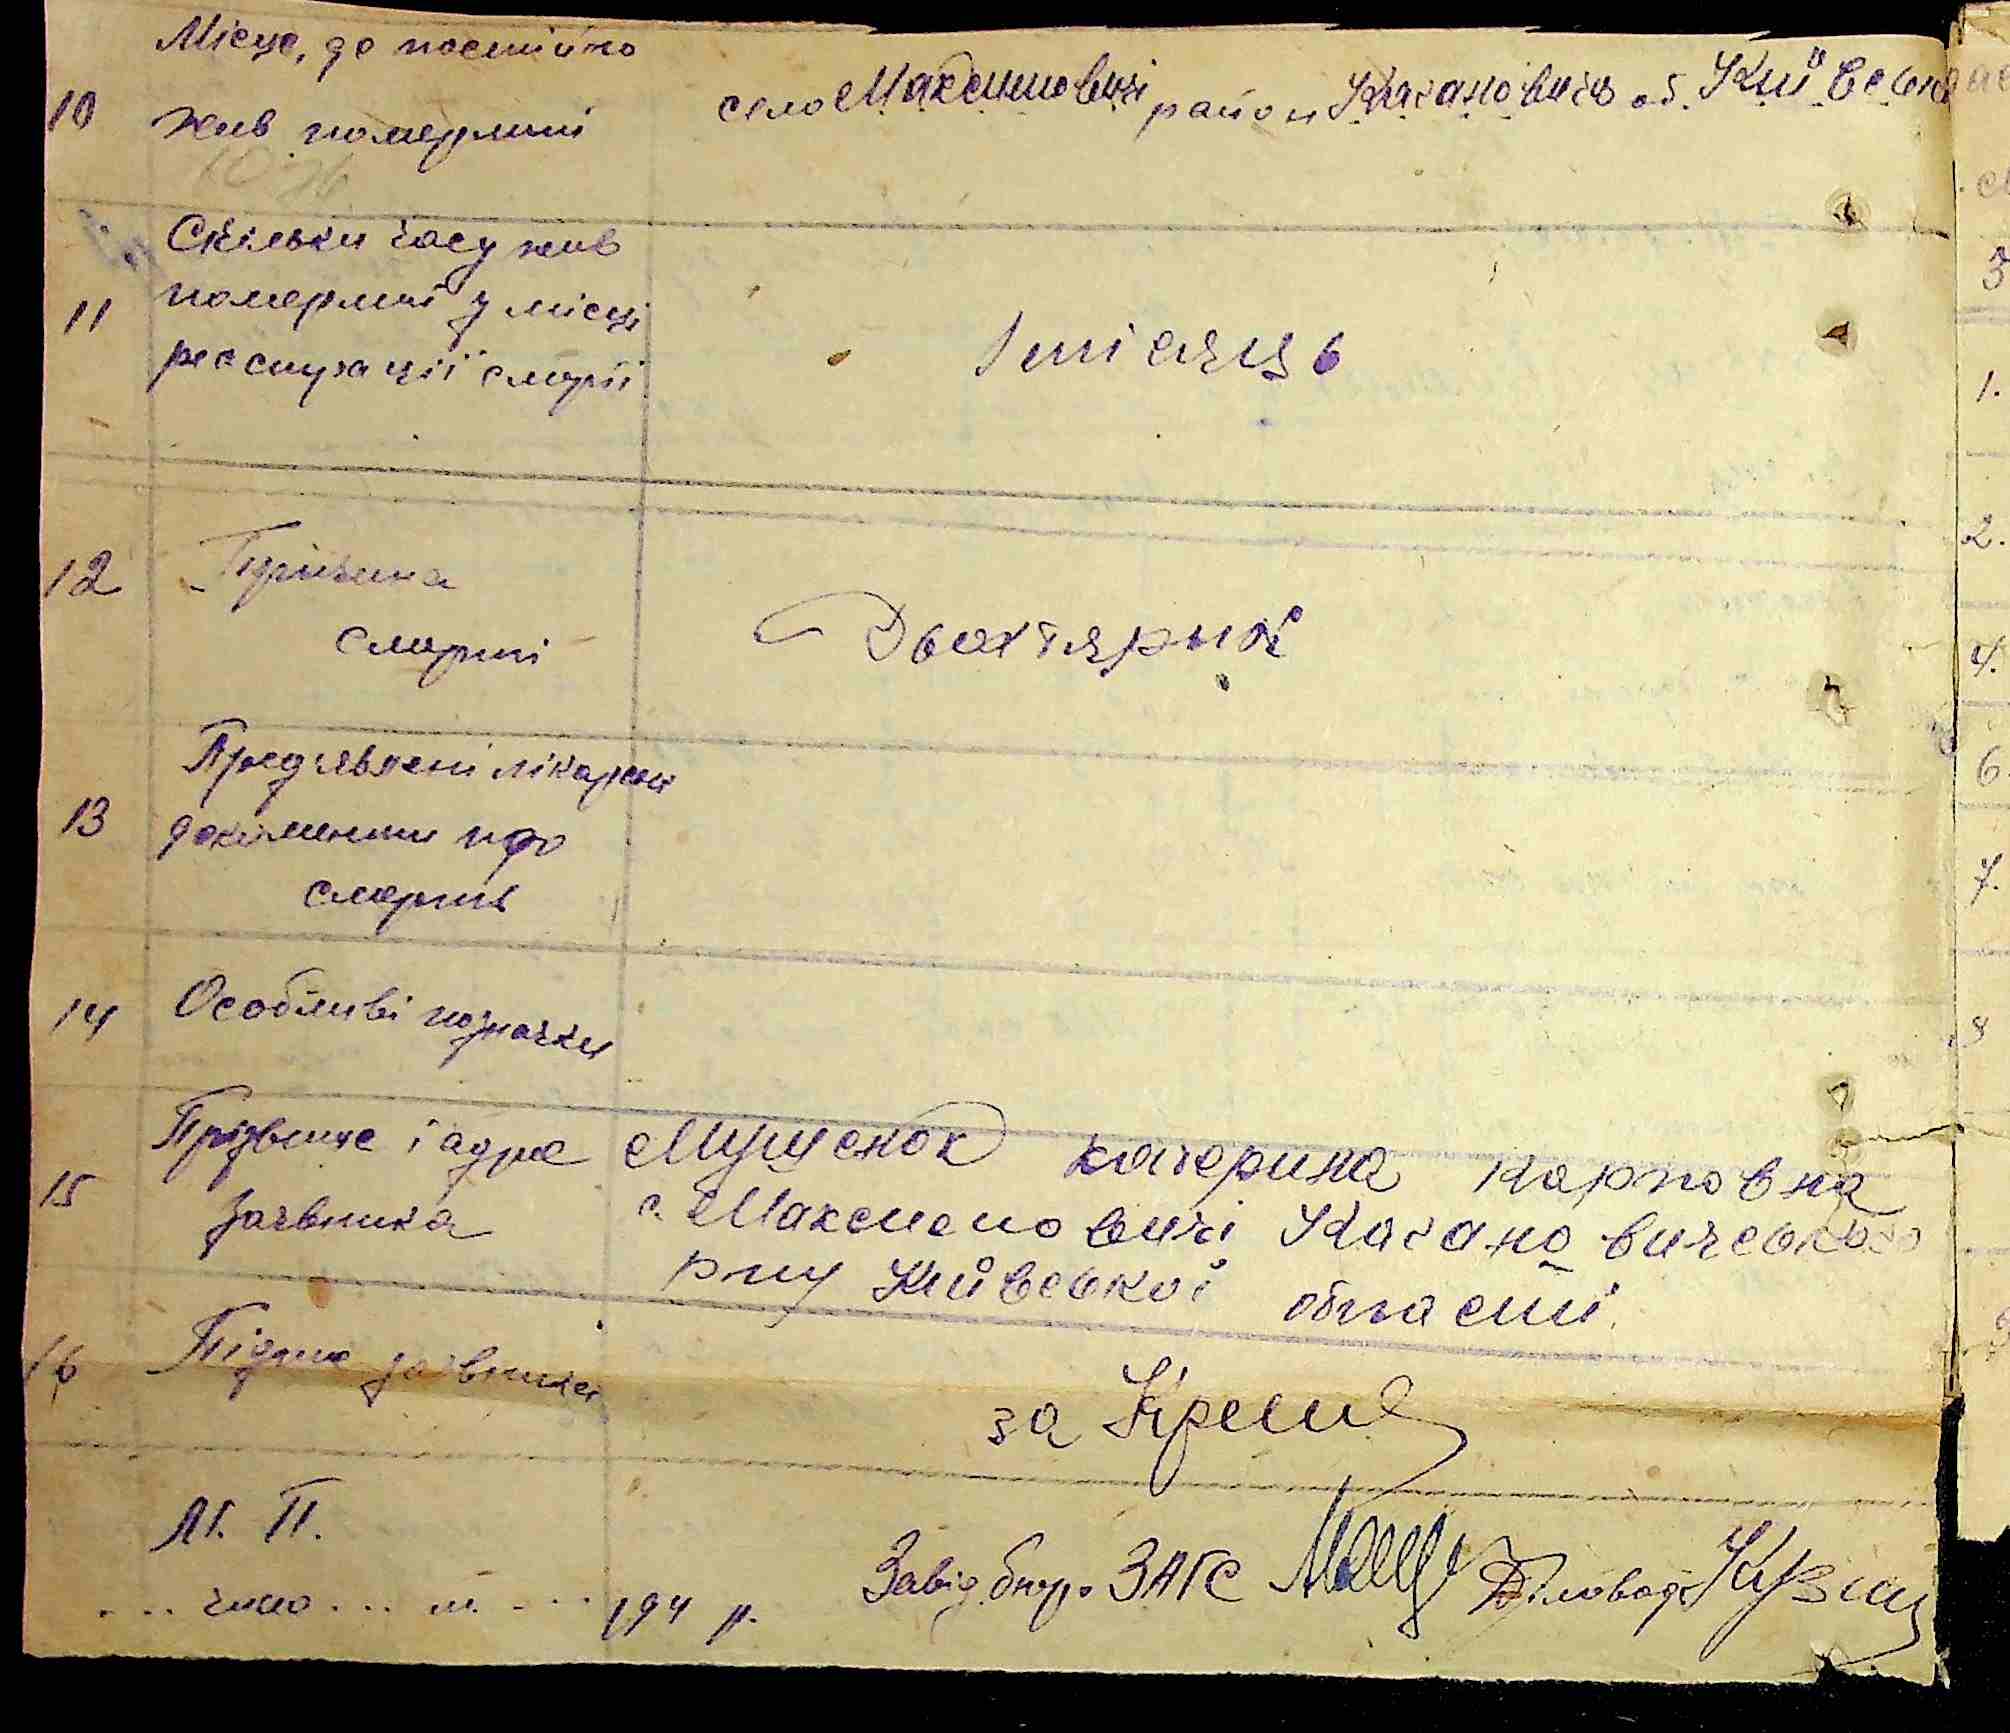 Місце, де постійно
10 жив померлий
село Максимовичі район Каганович об. Київська
Скільки часу жив
11 померлий у місці
реєстрації смерті
1 місяць
12 Причина
смерті
Дьохтярик
Предявлені лікарськ
13 документи про
смерть
14 Особливі позначки
15 Прізвище і адре
заявника
Мущенок Катерина Карповна
с. Максимовичі Кагановичського
р-ну Київської області
16 Підпис заявника
за
М. П.
... число ... м. ... 194 р.
Завід. бюро ЗАГС Діловод
3
1.
2.
4.
6.
7.
8